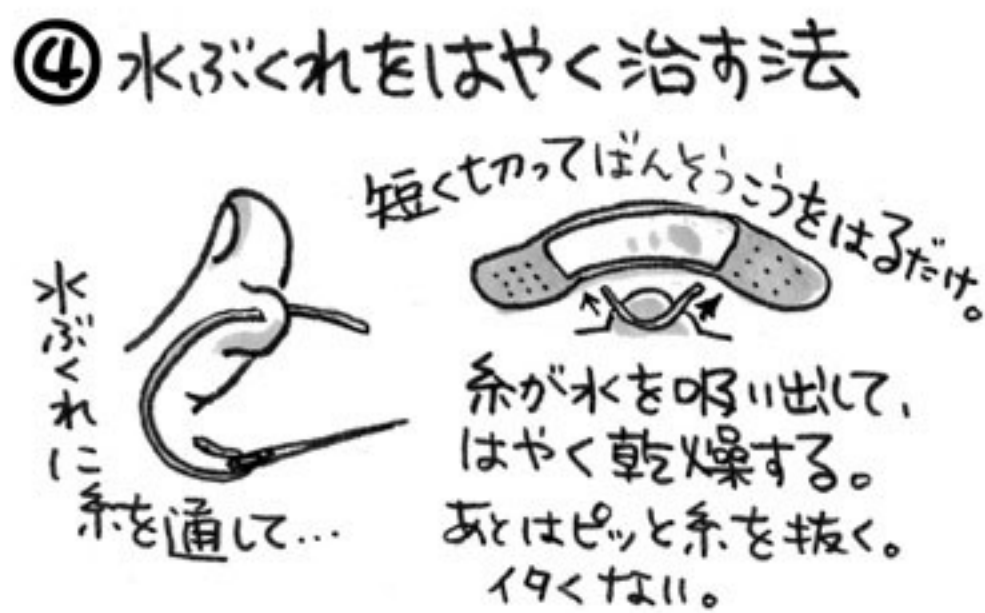 ④水ぶくれをはやく治す法
水ぶくれに
糸を通して…
短く切ってばんそうこうをはるだけ。
糸が水を吸い出して、
はやく乾燥する。
あとはピッと糸を抜く。
イタくない。